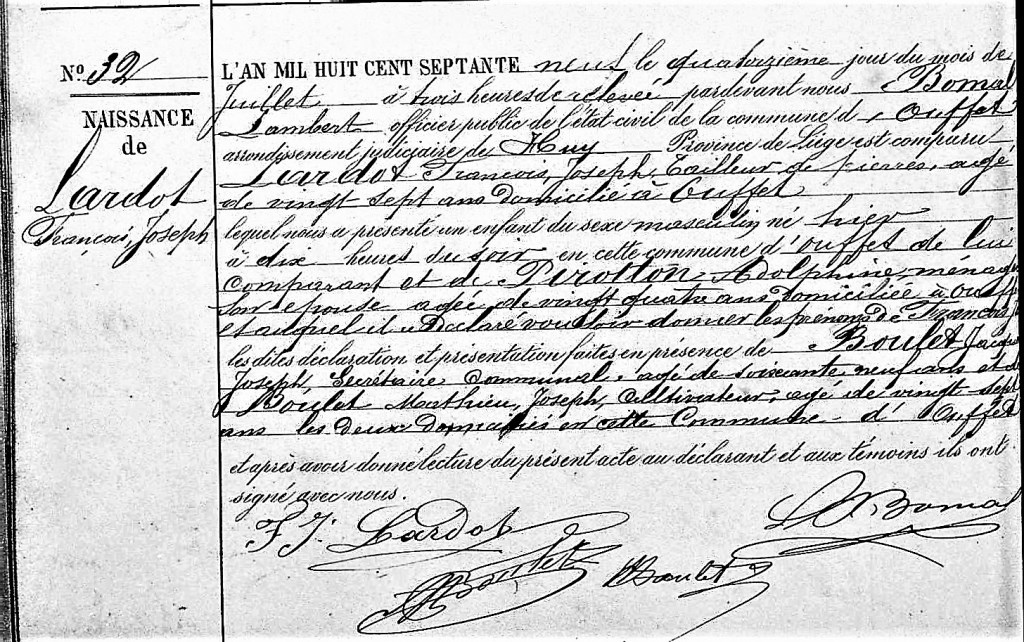 N° 32
NAISSANCE
de
Lardot
François, Joseph
L'AN MIL HUIT CENT SEPTANTE neuf le quatorzième jour du mois de
Juillet à trois heures de relevée pardevant nous Bomal
Lambert officier public de l'état civil de la commune d'Ouffet
arrondissement judiciaire de Huy Province de Liége est comparu
Lardot François, Joseph, Tailleur de pierres, agé
de vingt sept ans domicilié à Ouffet
lequel nous a présenté un enfant du sexe masculin né hier
à dix heures du soir en cette commune d'Ouffet de lui
comparant et de Pirotton, Adolphine, ménag
son épouse agée de vingt quatre ans domiciliée à Ouff
et auquel il a déclaré vouloir donner les prénoms de François
les dites déclaration et présentation faites en présence de Boulet Jacqu
Joseph, Secrétaire Communal, agé de soixante neuf ans et d
Boulet Mathieu, Joseph, Cultivateur, agé de vingt sept
ans les deux domiciliés en cette Commune d'Ouffet
et après avoir donné lecture du présent acte au déclarant et aux témoins ils ont
signé avec nous.
F J. Lardot
L Bomal
Boulet
Boulet